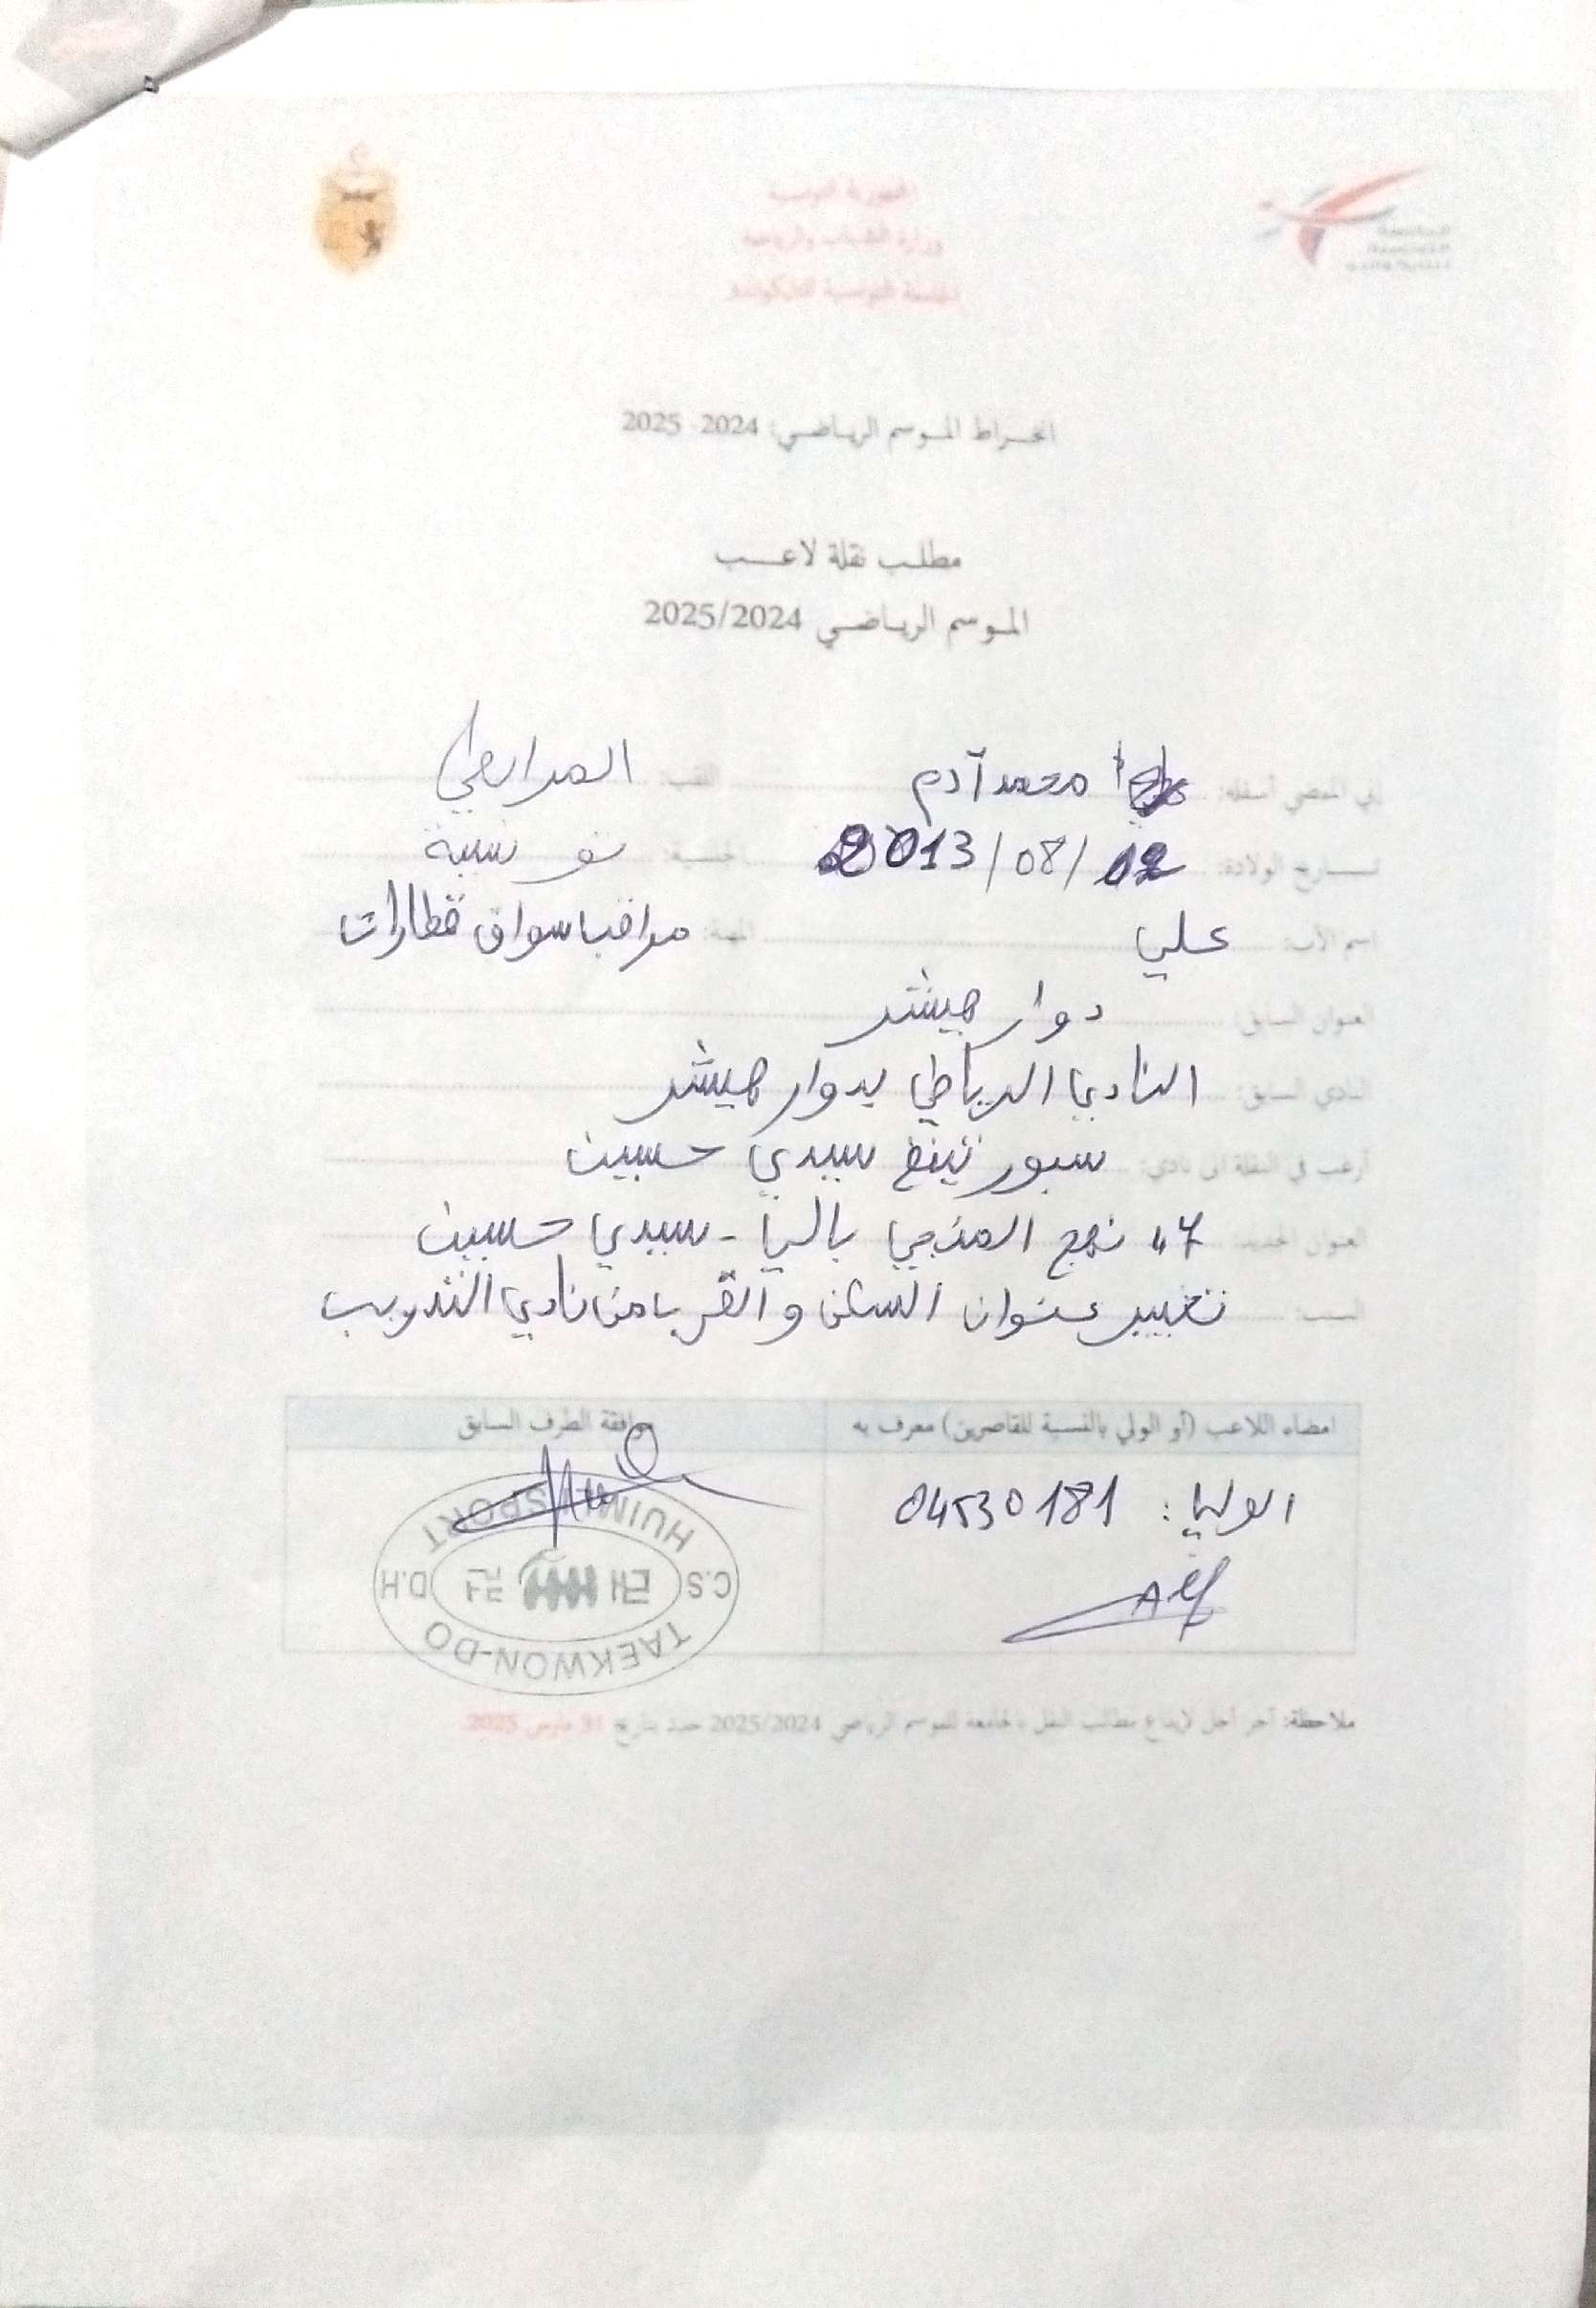 الجمهورية التونسية
وزارة الشباب والرياضة
الجامعة التونسية للتايكواندو
انخراط الموسم الرياضي: 2024 2025
مطلب نقلة لاعب
الموسم الرياضي 2025/2024
إني الممضي أسفله: محمد آدم اللقب: المرابطي
تاريخ الولادة: 2013/08/12 الجنسية: تونسية
اسم الأب: علي المهنة: مراقب سواق قطارات
العنوان السابق: دوار هيشر
النادي السابق: النادي الرياضي بدوار هيشر
أرغب في النقلة الى نادي: سبورتينغ سيدي حسين
العنوان الجديد: نهج المنجي بالي - سيدي حسين
السبب: تغيير عنوان السكن و القرب من نادي التدريب
امضاء اللاعب (أو الولي بالنسبة للقاصرين) معرف به
موافقة الطرف السابق
الولي: 04530181
HUIMI SPORT
C.S D.H
태 권
TAEKWON-DO
ملاحظة: آخر أجل لإيداع مطالب النقل بالجامعة للموسم الرياضي 2025/2024 حدد بتاريخ 31 مارس 2025.